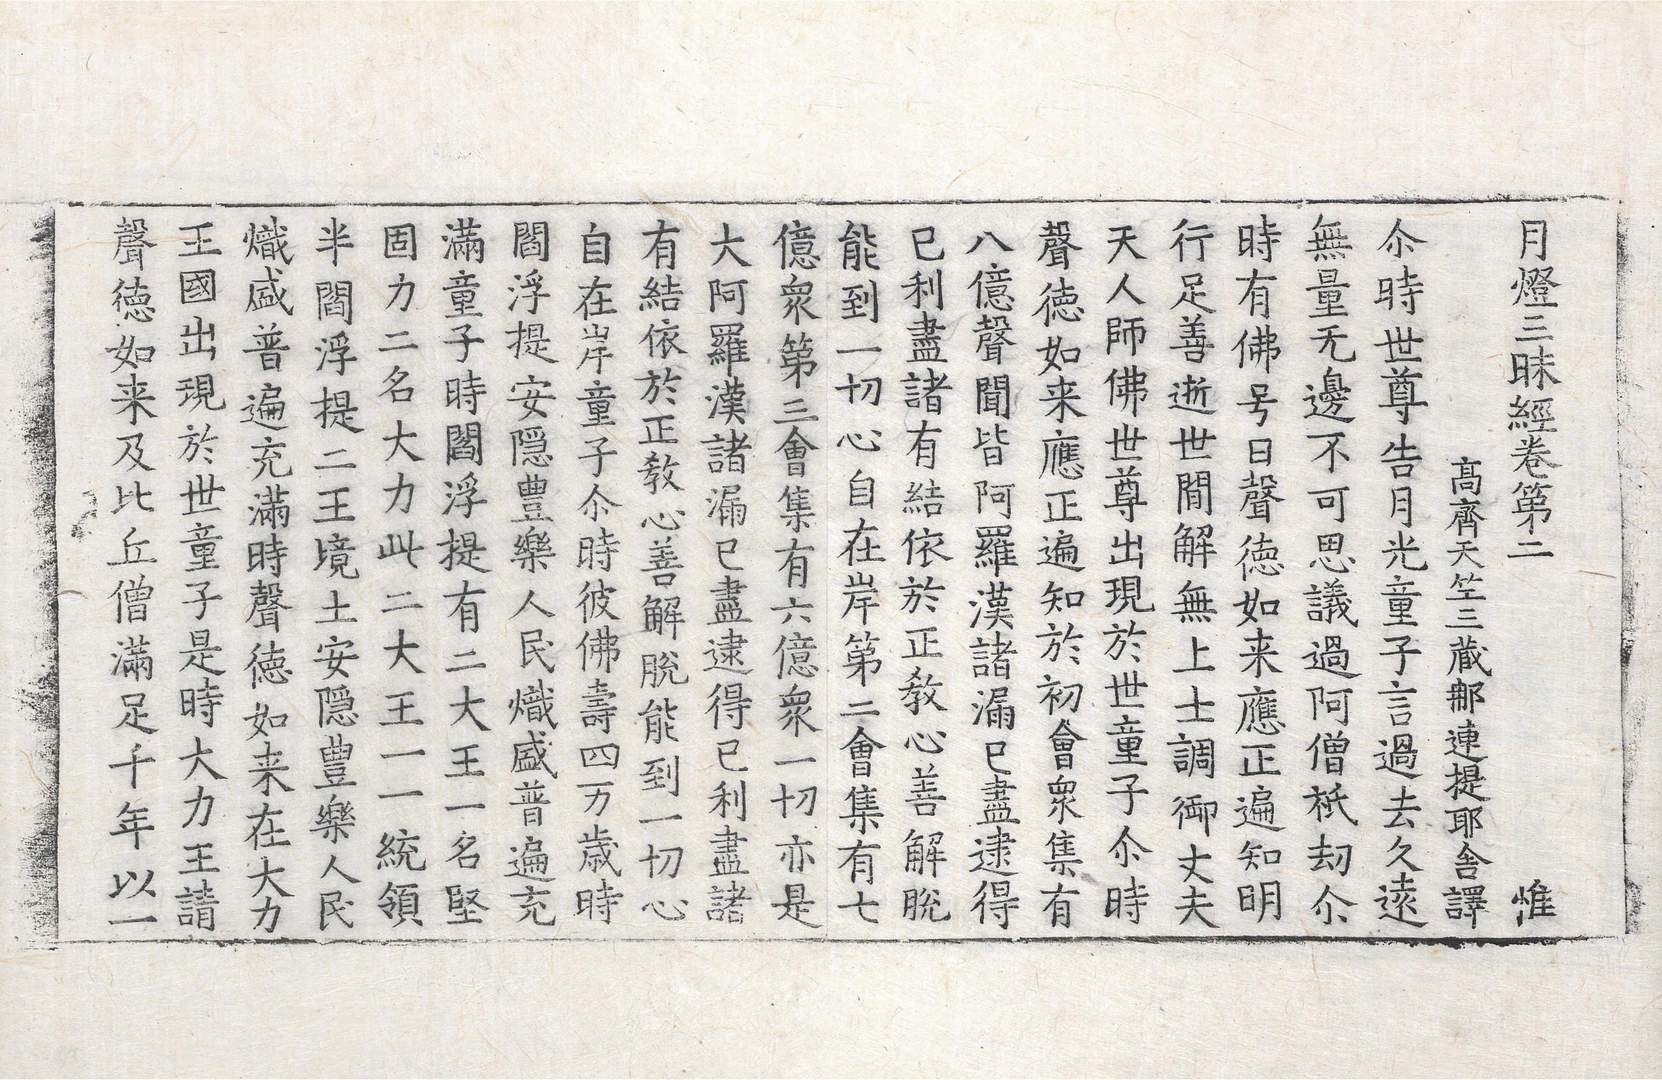 月燈三昧經卷第二 惟
高齊天竺三藏那連提耶舍譯
尒時世尊告月光童子言過去久遠
無量无邊不可思議過阿僧祇劫尒
時有佛号曰聲徳如来應正遍知明
行足善逝世間解無上士調御丈夫
天人師佛世尊出現於世童子尒時
聲徳如来應正遍知於初會衆集有
八億聲聞皆阿羅漢諸漏已盡逮得
已利盡諸有結依於正教心善解脫
能到一切心自在岸第二會集有七
億衆第三會集有六億衆一切亦是
大阿羅漢諸漏已盡逮得已利盡諸
有結依於正教心善解脫能到一切心
自在岸童子尒時彼佛壽四万歲時
閻浮提安隠豊樂人民熾盛普遍充
滿童子時閻浮提有二大王一名堅
固力二名大力此二大王一一統領
半閻浮提二王境土安隠豊樂人民
熾盛普遍充滿時聲徳如来在大力
王國出現於世童子是時大力王請
聲徳如来及比丘僧滿足千年以一